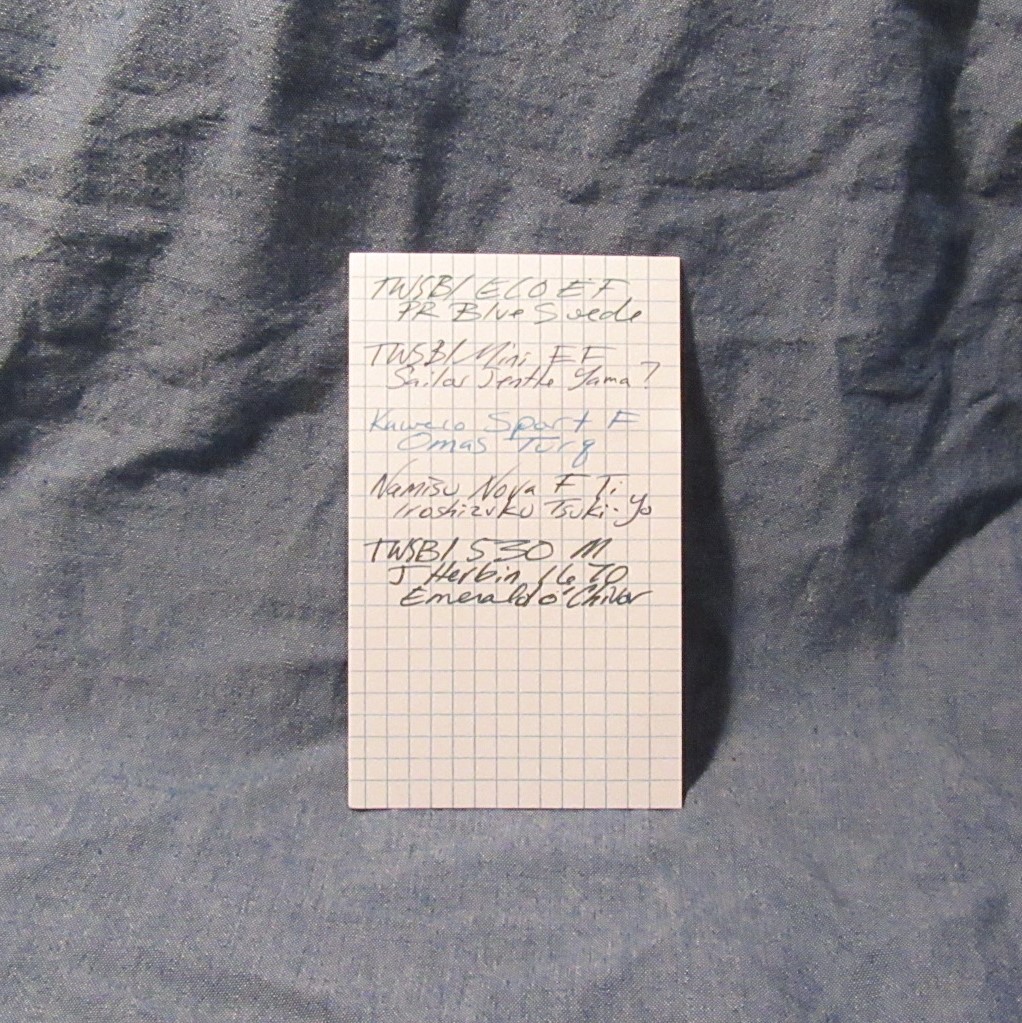 TWSBI ECO EF
PR Blue Suede
TWSBI Mini EF
Sailor Jentle Yama ?
Kaweco Sport F
Omas Turq
Namisu Nova F Ti
Iroshizuku Tsuki-yo
TWSBI 530 M
J Herbin 1670
Emerald o' Chivor